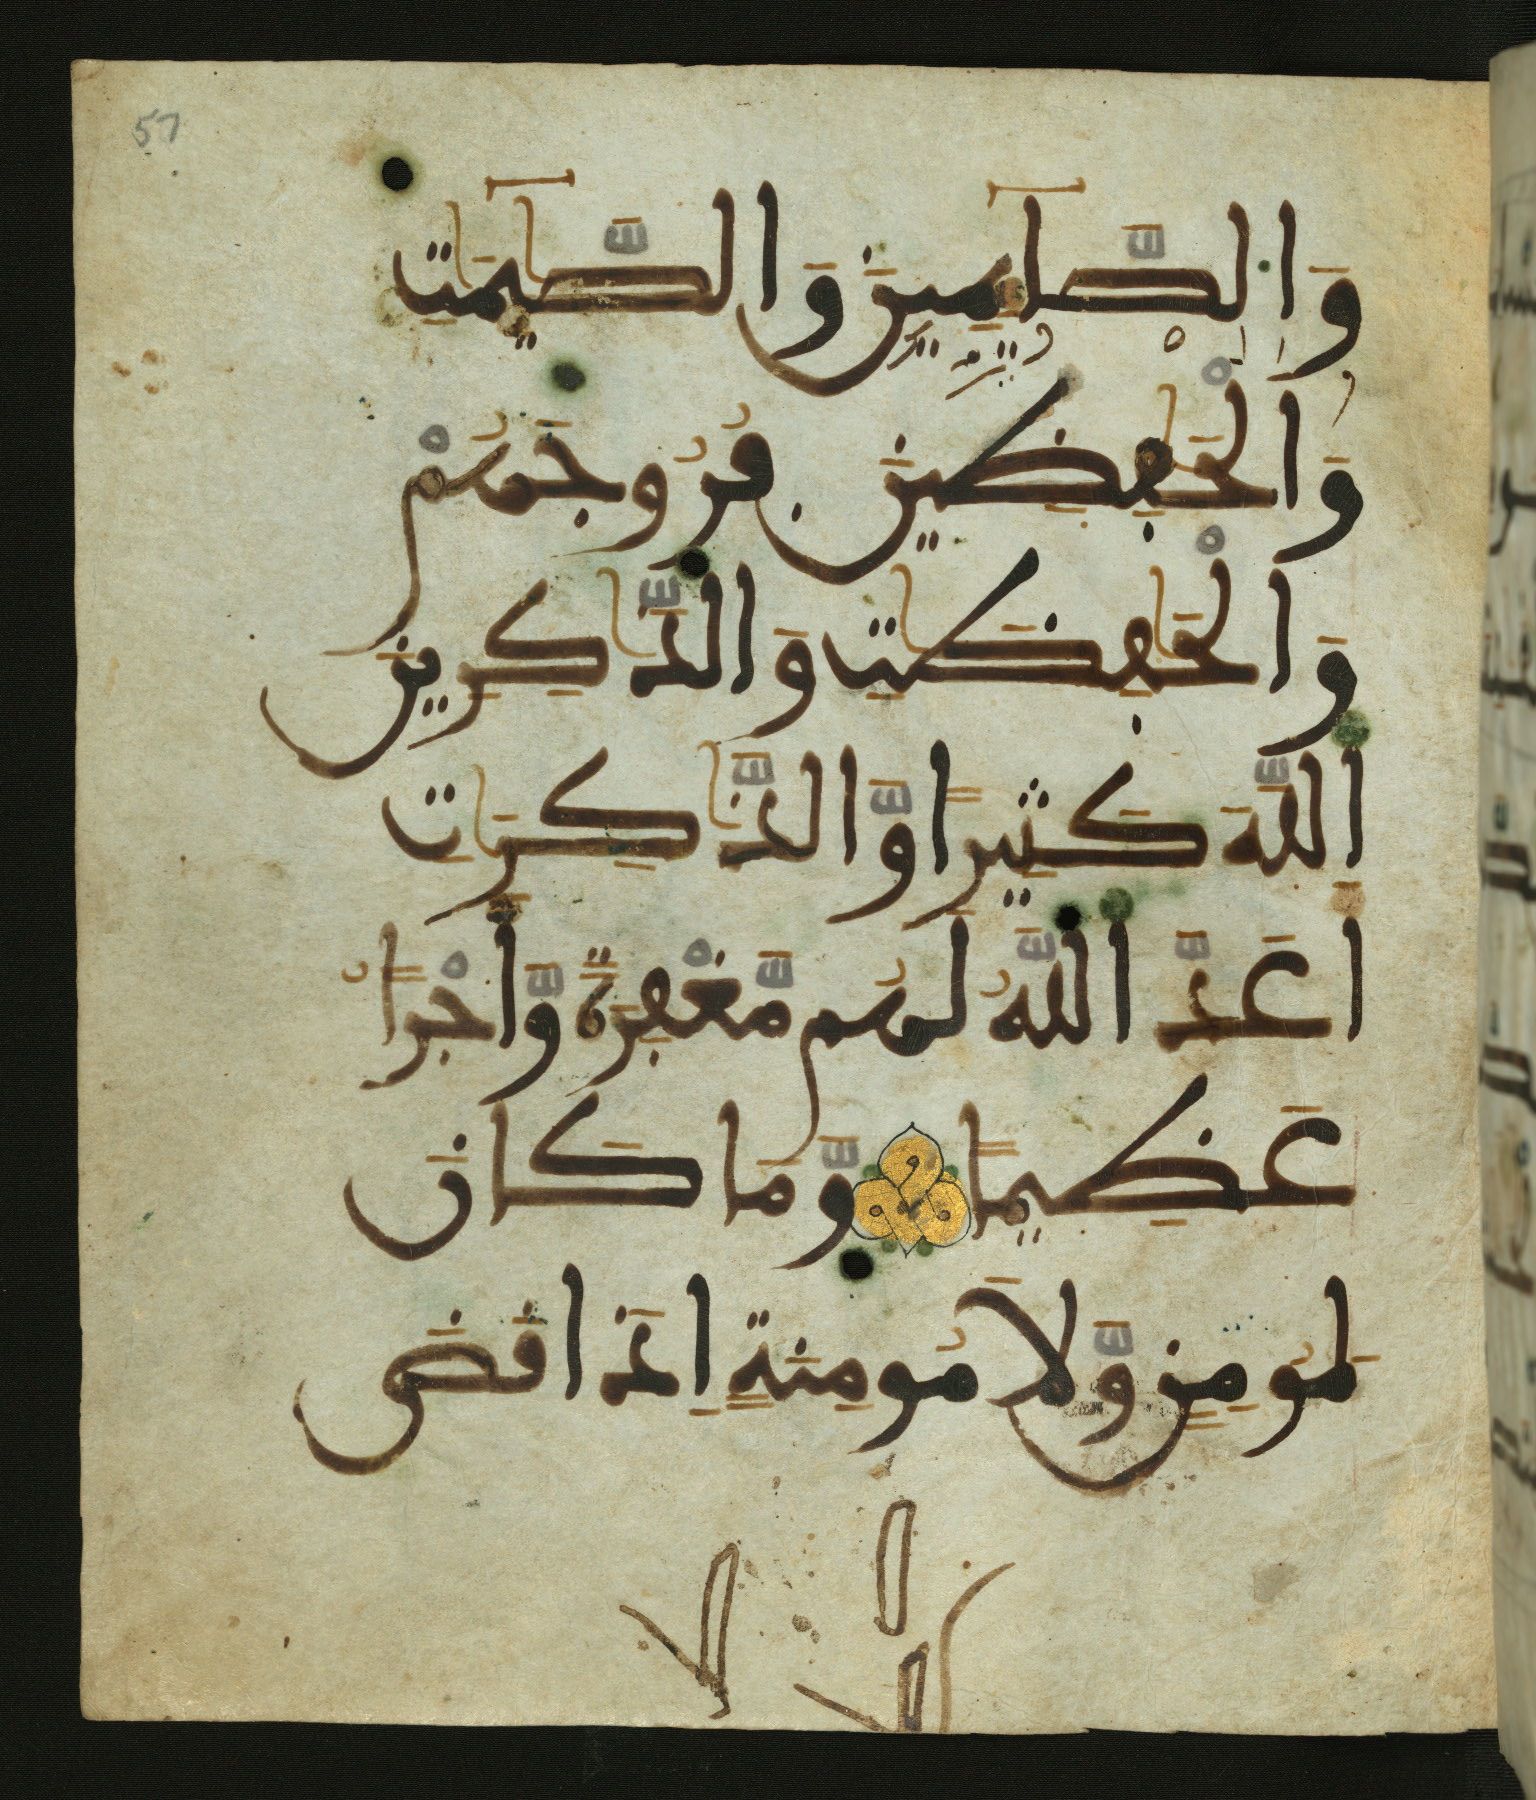 57
وَالصَّآئِمِينَ وَالصَّٰٓئِمَٰتِ
وَالْحَٰفِظِينَ فُرُوجَهُمْ
وَالْحَٰفِظَٰتِ وَالذَّٰكِرِينَ
اللَّهَ كَثِيرًا وَّالذَّٰكِرَٰتِ
أَعَدَّ اللَّهُ لَهُم مَّغْفِرَةً وَّأَجْرًا
عَظِيمًا وَّمَا كَانَ
لِمُومِنٍ وَّلَا مُومِنَةٍ إِذَا قَضَى